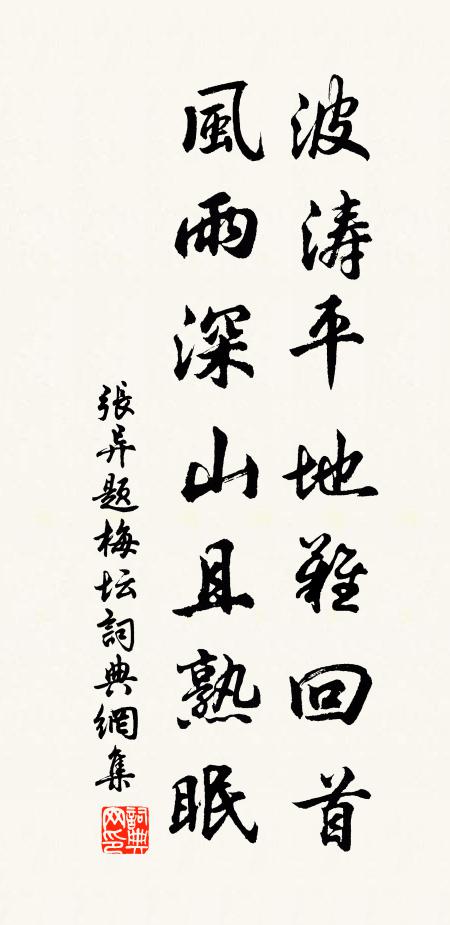 波涛平地難回首
風雨深山且熟眠
張昪題梅坛詞典網集
詞典
网印